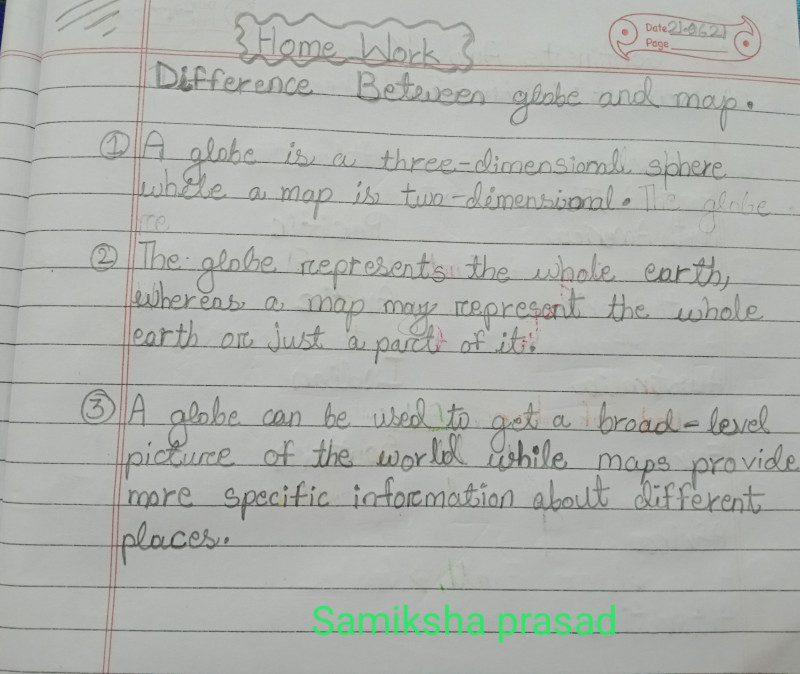 Home Work
Date 21.06.21
Page
Difference Between globe and map.
① A globe is a three-dimensional sphere
while a map is two-dimensional. The globe
re
② The globe represents the whole earth,
whereas a map may represent the whole
earth or just a part of it.
③ A globe can be used to get a broad-level
picture of the world while maps provide
more specific information about different
places.
Samiksha prasad